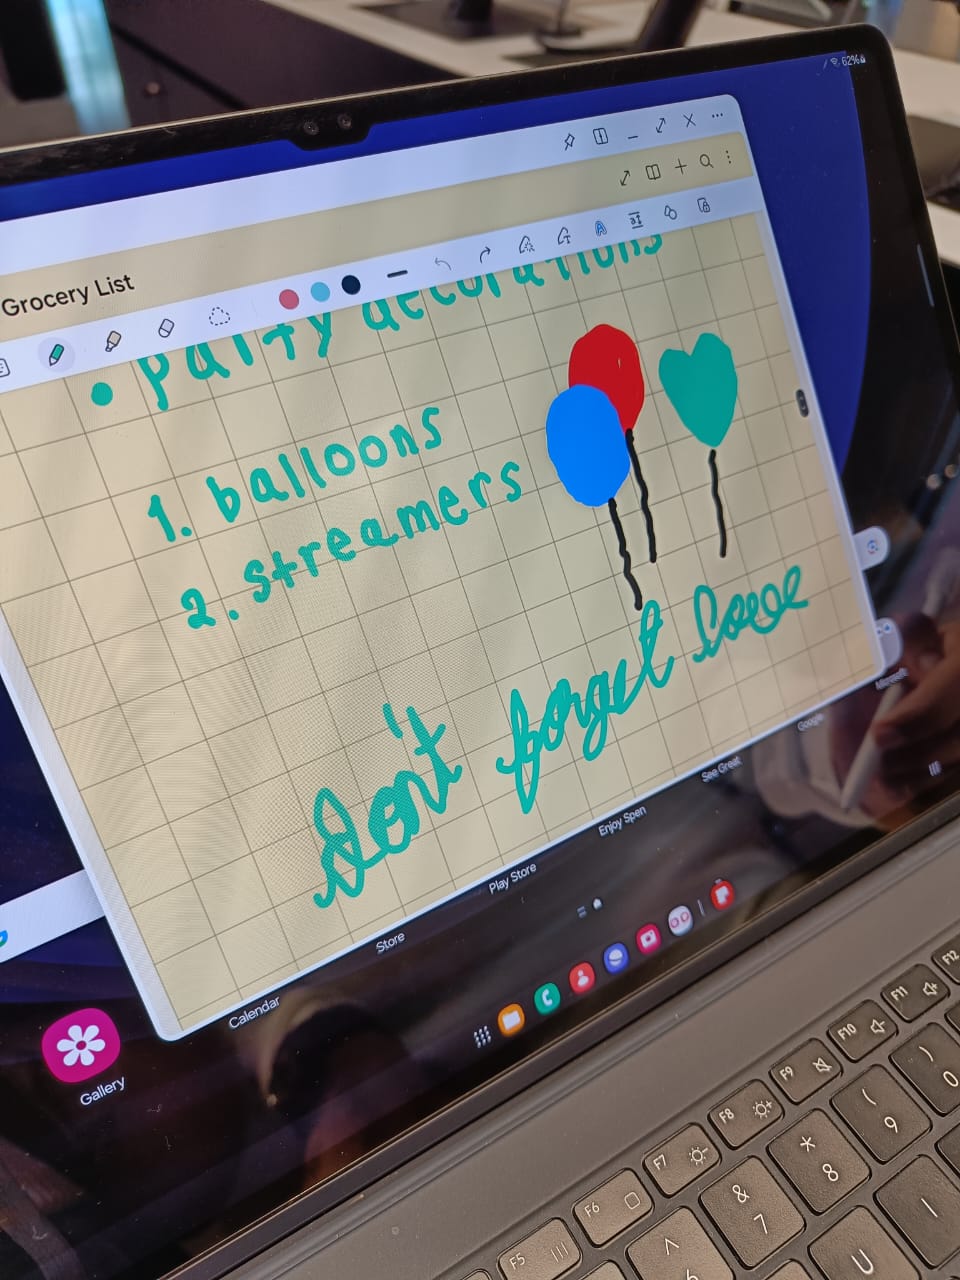 62%
Grocery List
• party decorations
1. balloons
2. streamers
Don't forget
Calendar
Store
Play Store
Enjoy Spen
See Great
Google
Microsoft
Gallery
F5
F6
F7
F8
F9
F10
F11
F12
^ 6
& 7
* 8
( 9
) 0
U
I